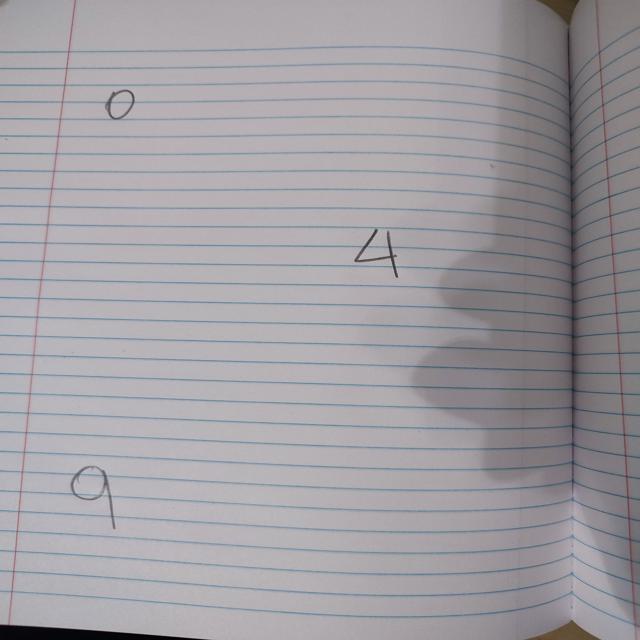 0
4
9